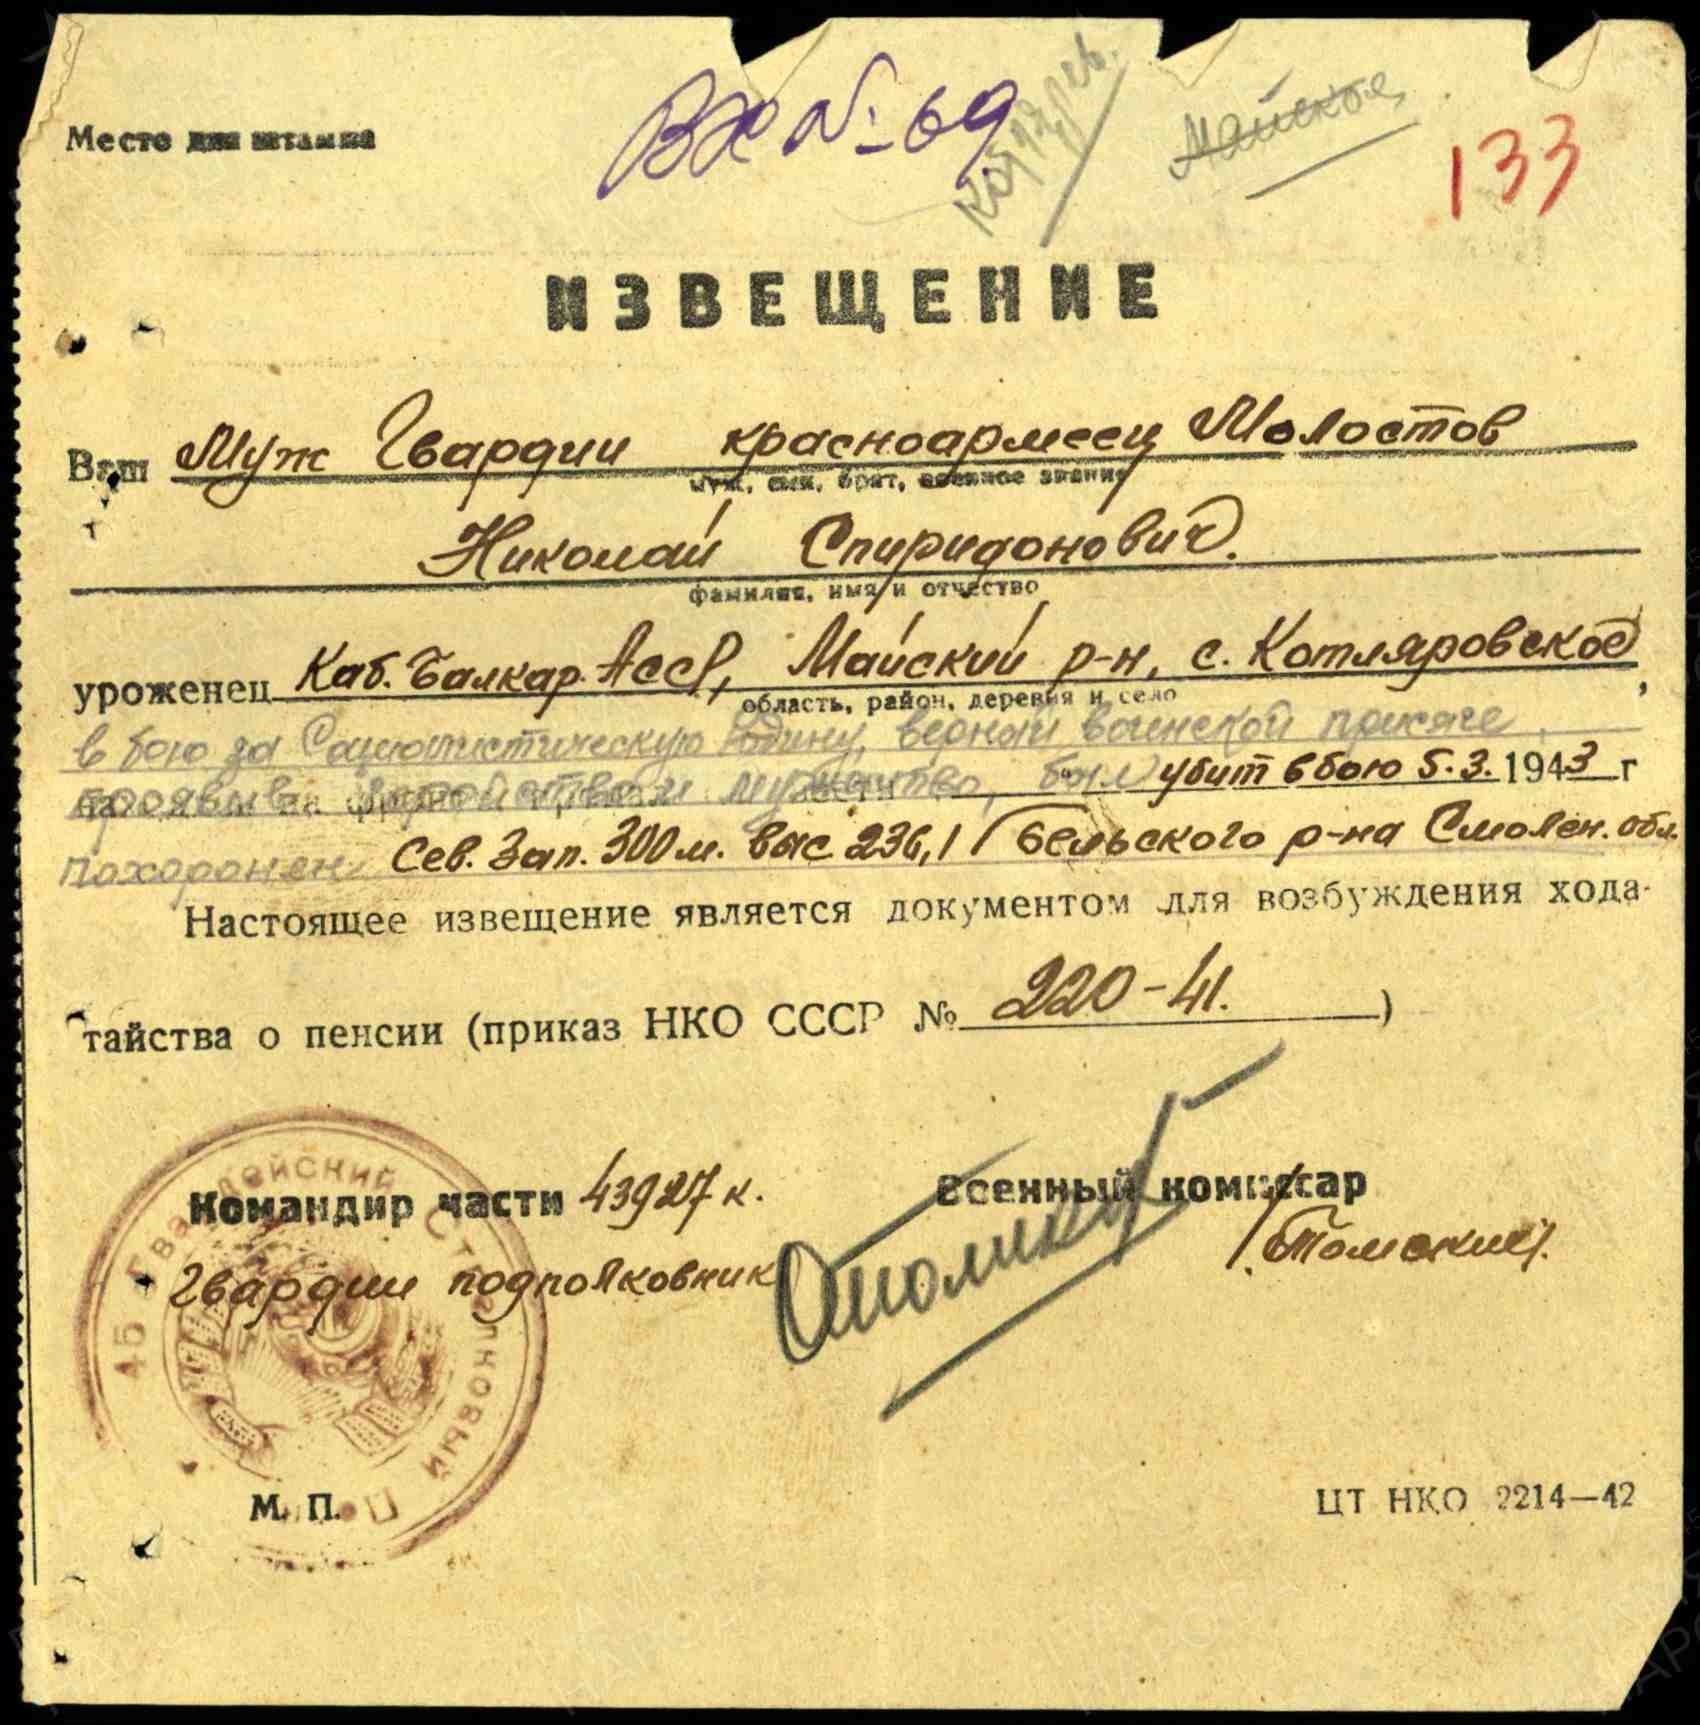 Место для штампа
Вх № 69
Майской
133
ИЗВЕЩЕНИЕ
Ваш Муж Гвардии красноармеец Молостов
муж, сын, брат, военное звание
Николай Спиридонович.
фамилия, имя и отчество
уроженец Каб. Балкар. АССР, Майский р-н, с. Котляровское,
область, район, деревня и село
в бою за Социалистическую Родину, верный воинской присяге,
проявив геройство и мужество, был убит в бою 5.3.1943 г
похоронен Сев. Зап. 300 м. выс 236,1 Бельского р-на Смолен. обл.
Настоящее извещение является документом для возбуждения хода-
тайства о пенсии (приказ НКО СССР № 220-41.)
Командир части 43927 к. Военный комиссар
Гвардии подполковник /Томский/.
45 Гвардейский Стрелковый
М. П.
ЦТ НКО 2214—42